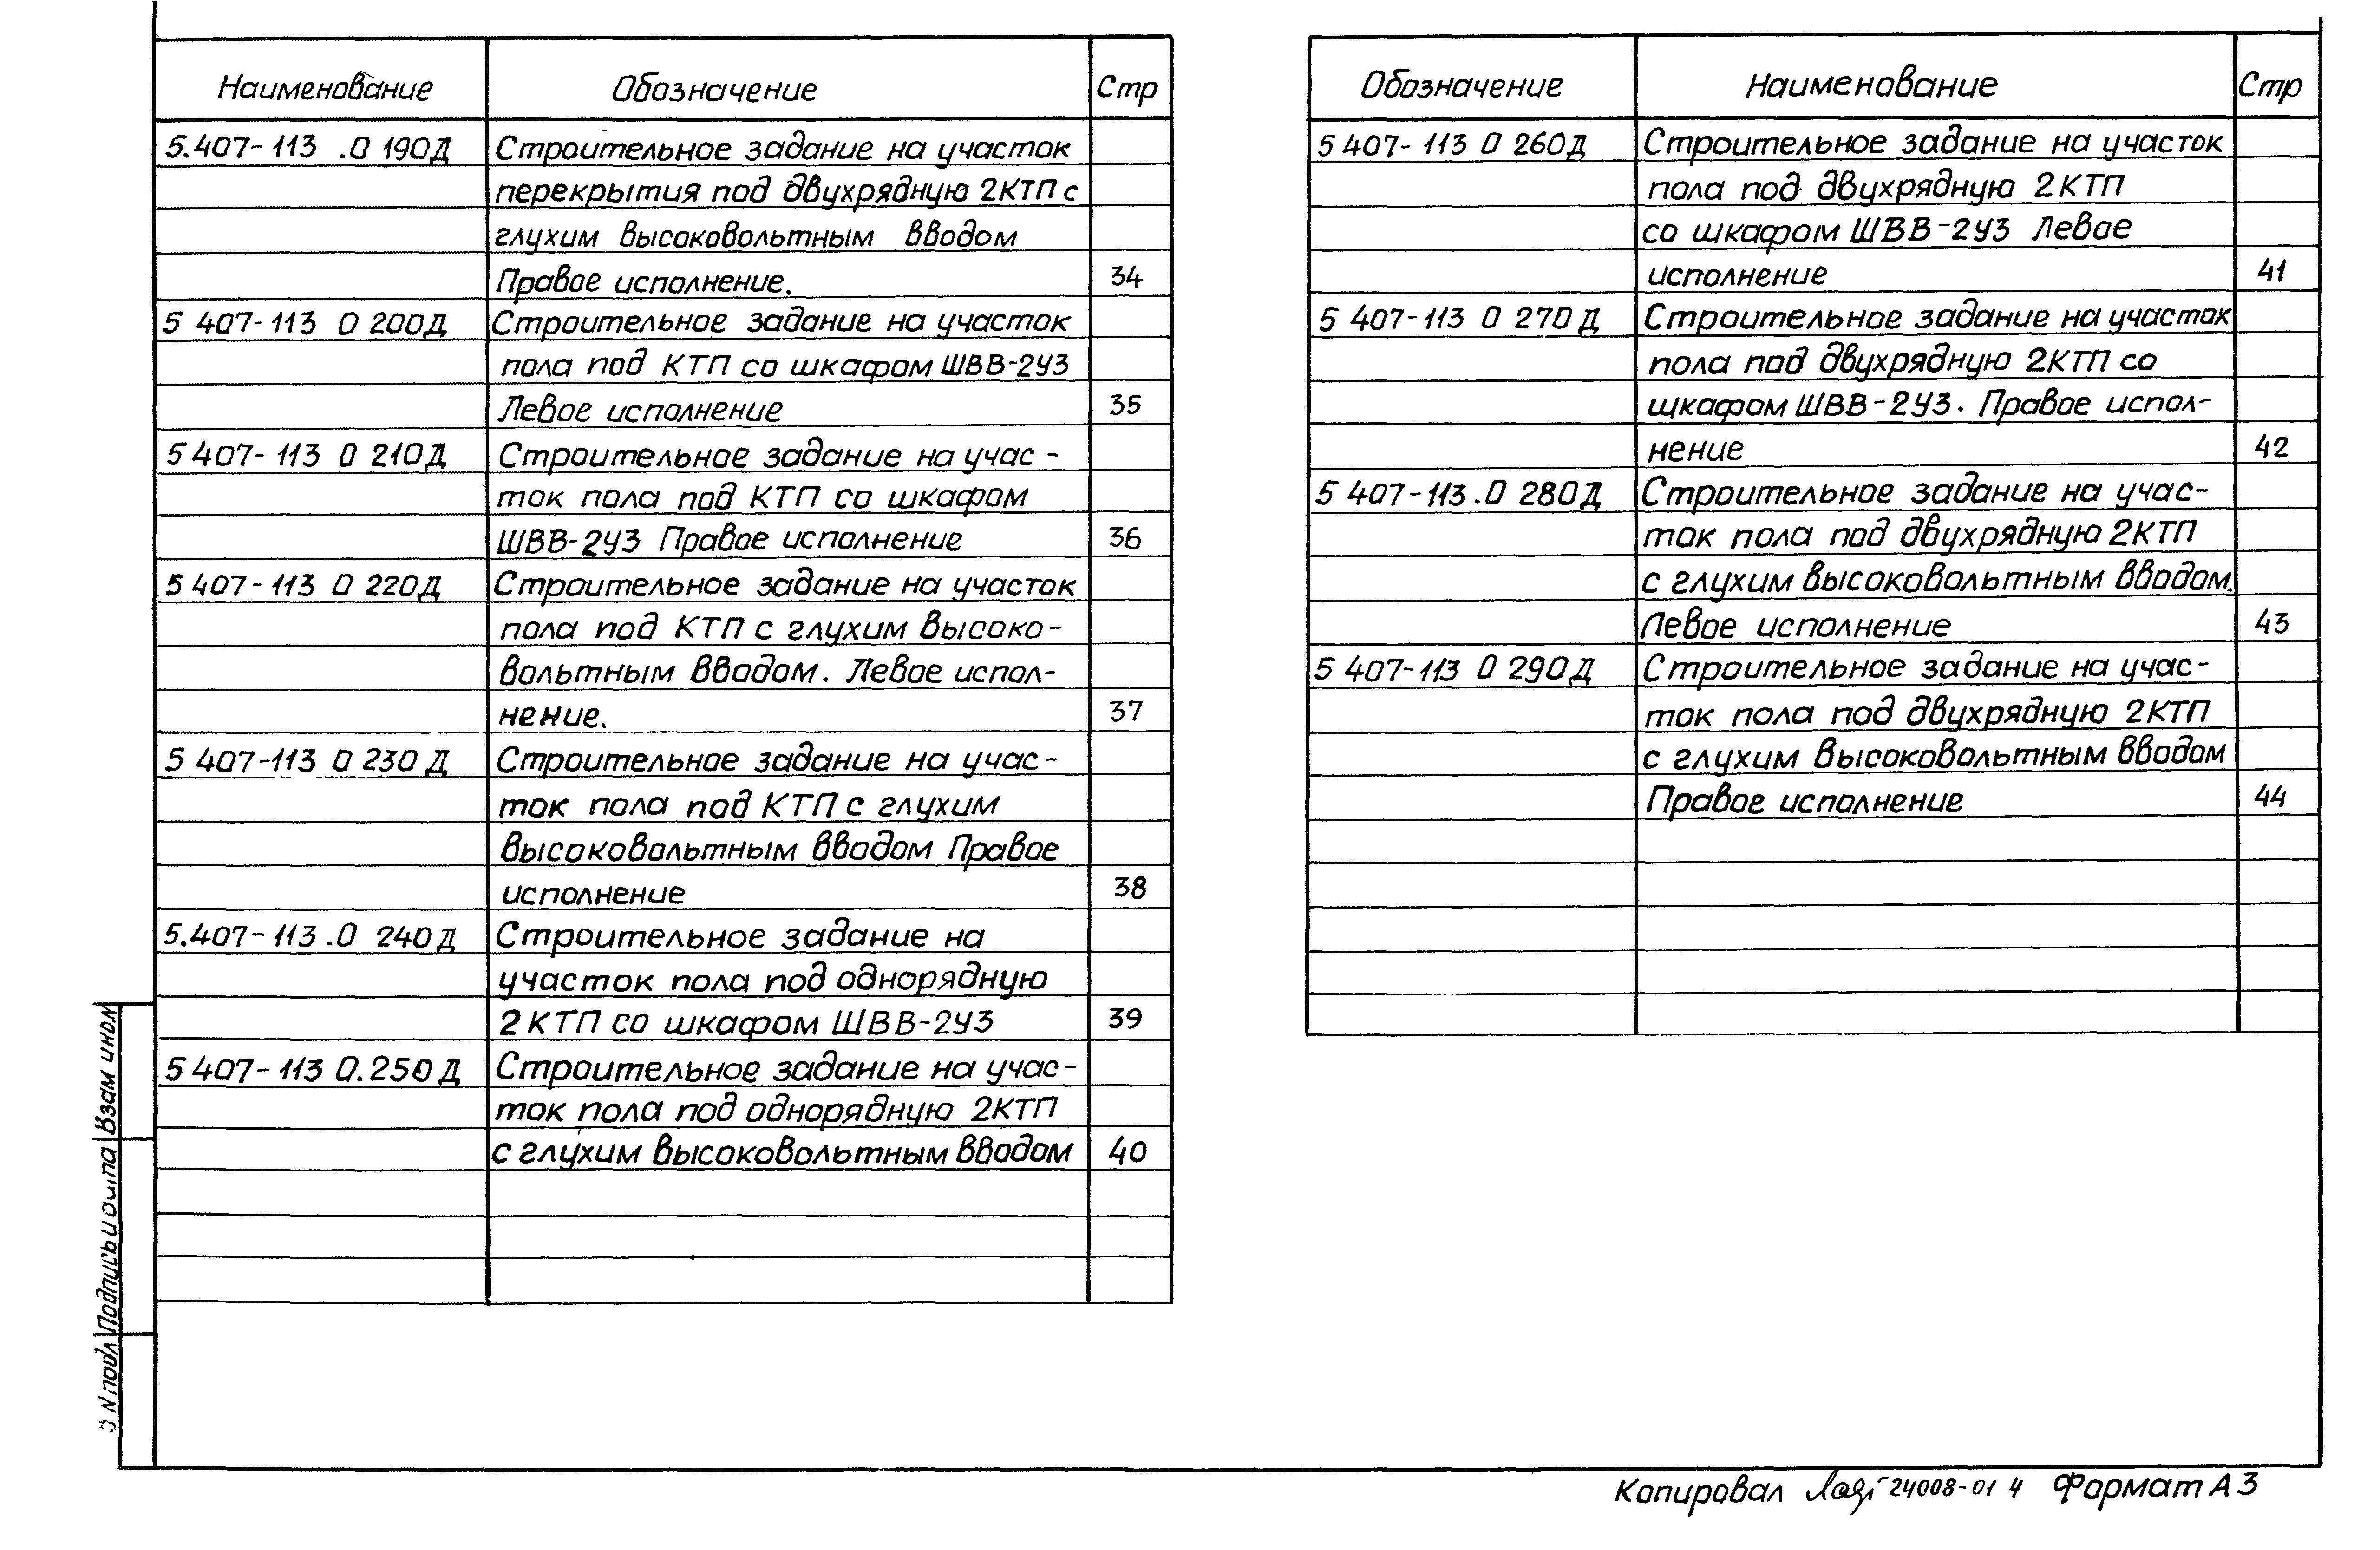 Наименование Обозначение Стр
5.407-113 .0 190Д Строительное задание на участок
перекрытия под двухрядную 2КТП с
глухим высоковольтным вводом
Правое исполнение. 34
5 407-113 0 200Д Строительное задание на участок
пола под КТП со шкафом ШВВ-2У3
Левое исполнение 35
5 407-113 0 210Д Строительное задание на учас-
ток пола под КТП со шкафом
ШВВ-2У3 Правое исполнение 36
5 407-113 0 220Д Строительное задание на участок
пола под КТП с глухим высоко-
вольтным вводом. Левое испол-
нение. 37
5 407-113 0 230Д Строительное задание на учас-
ток пола под КТП с глухим
высоковольтным вводом Правое
исполнение 38
5.407-113.0 240Д Строительное задание на
участок пола под однорядную
2КТП со шкафом ШВВ-2У3 39
5 407-113 0.250Д Строительное задание на учас-
ток пола под однорядную 2КТП
с глухим высоковольтным вводом 40
Обозначение Наименование Стр
5 407-113 0 260Д Строительное задание на участок
пола под двухрядную 2КТП
со шкафом ШВВ-2У3 Левое
исполнение 41
5 407-113 0 270Д Строительное задание на участок
пола под двухрядную 2КТП со
шкафом ШВВ-2У3. Правое испол-
нение 42
5 407-113.0 280Д Строительное задание на учас-
ток пола под двухрядную 2КТП
с глухим высоковольтным вводом.
Левое исполнение 43
5 407-113 0 290Д Строительное задание на учас-
ток пола под двухрядную 2КТП
с глухим высоковольтным вводом
Правое исполнение 44
Взам инвN
Подпись и
N подл
Копировал 24008-01 4 Формат А3